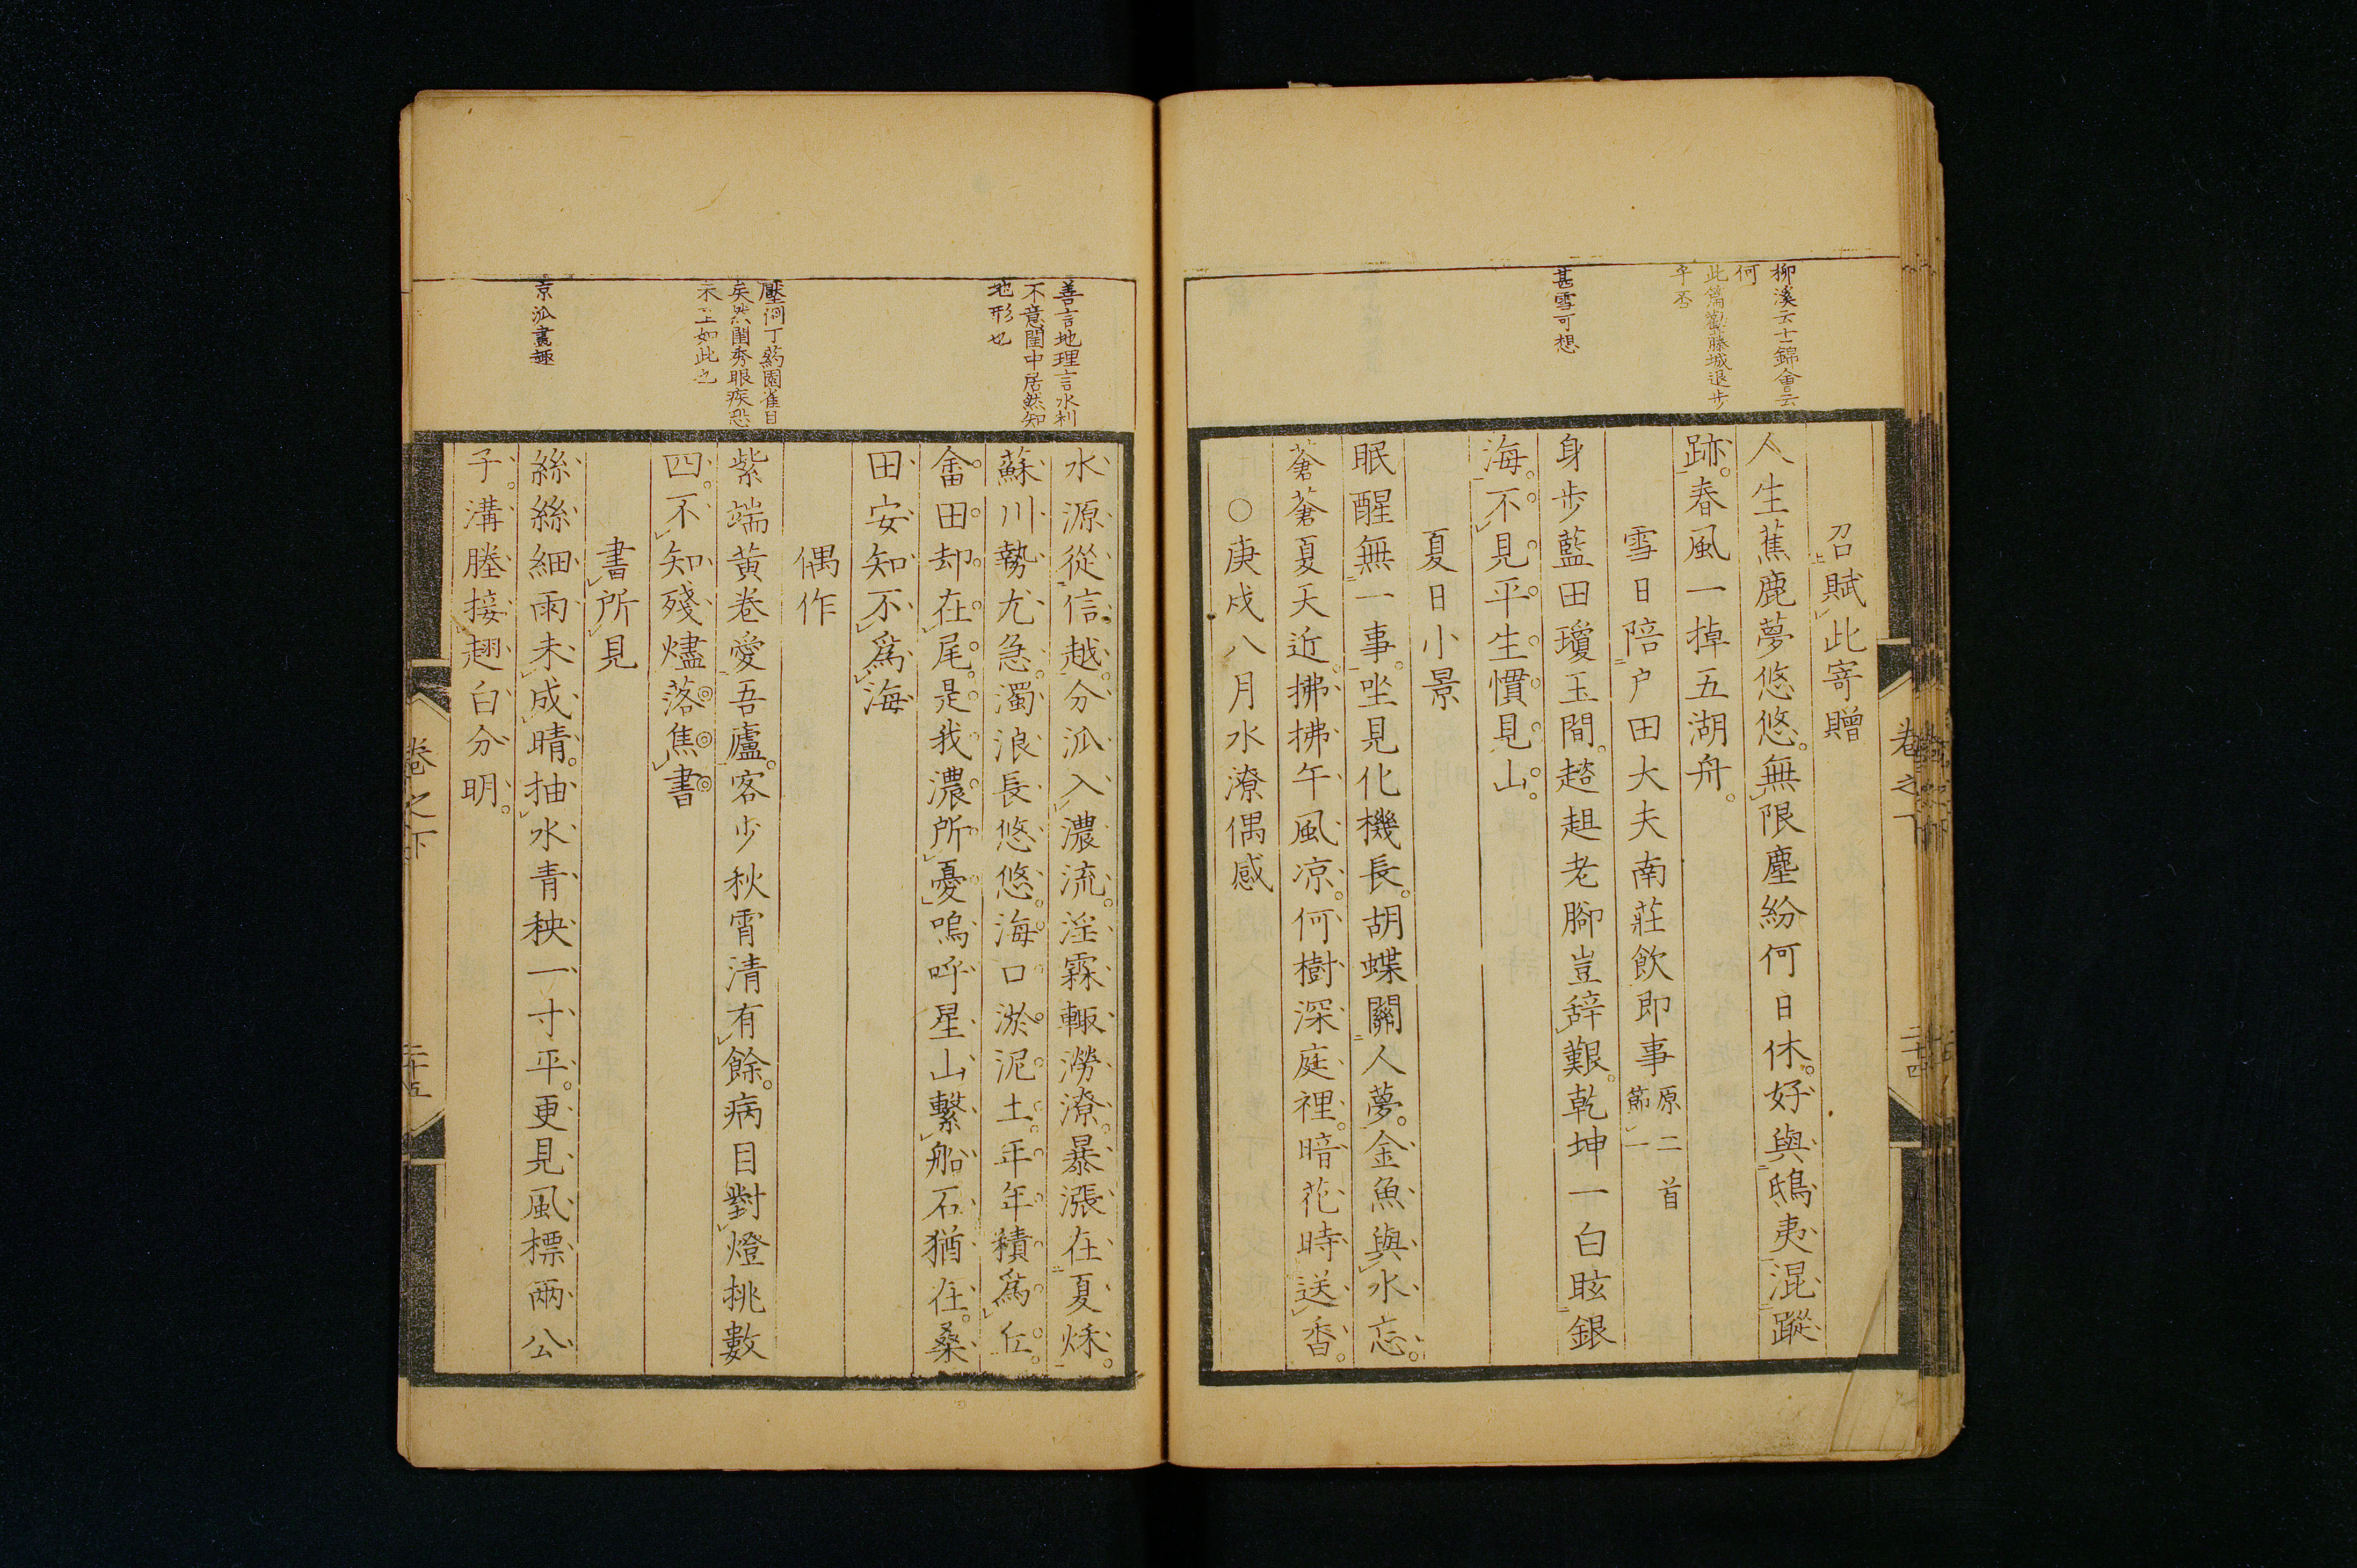 柳溪云十二錦會云
何
此篇鸞藤城退步
乎否
甚雪可想
召賦此寄贈
人生蕉鹿夢悠悠。無限塵紛何日休。好與鴟夷混蹤
跡。春風一掉五湖舟。
雪日陪戶田大夫南莊飲即事原二首
節一
身步藍田瓊玉間。趦趄老腳豈辭艱。乾坤一白眩銀
海。不見平生慣見山。
夏日小景
眠醒無一事。坐見化機長。胡蝶關人夢。金魚與水忘。
蒼蒼夏天近。拂拂午風凉。何樹深庭裡。暗花時送香。
○庚戌八月水潦偶感
卷之下
二十四
善言地理言水利
不意閨中居然知
地形也
壓倒丁药園雀目
矣然閨秀眼疾恐
未至如此也
京派畫趣
水源從信越。分派入濃流。淫霖輙澇潦。暴漲在夏秋。
蘇川勢尤急。濁浪長悠悠。海口淤泥土。年年積爲丘。
畬田却在尾。是我濃所憂。嗚呼星山繫船石猶在。桑
田安知不爲海
偶作
紫端黃卷愛吾廬。客少秋霄清有餘。病目對燈挑數
四。不知殘燼落焦書
書所見
絲絲細雨未成晴。抽水青秧一寸平。更見風標兩公
子。溝塍接趐白分明。
卷之下
二十五